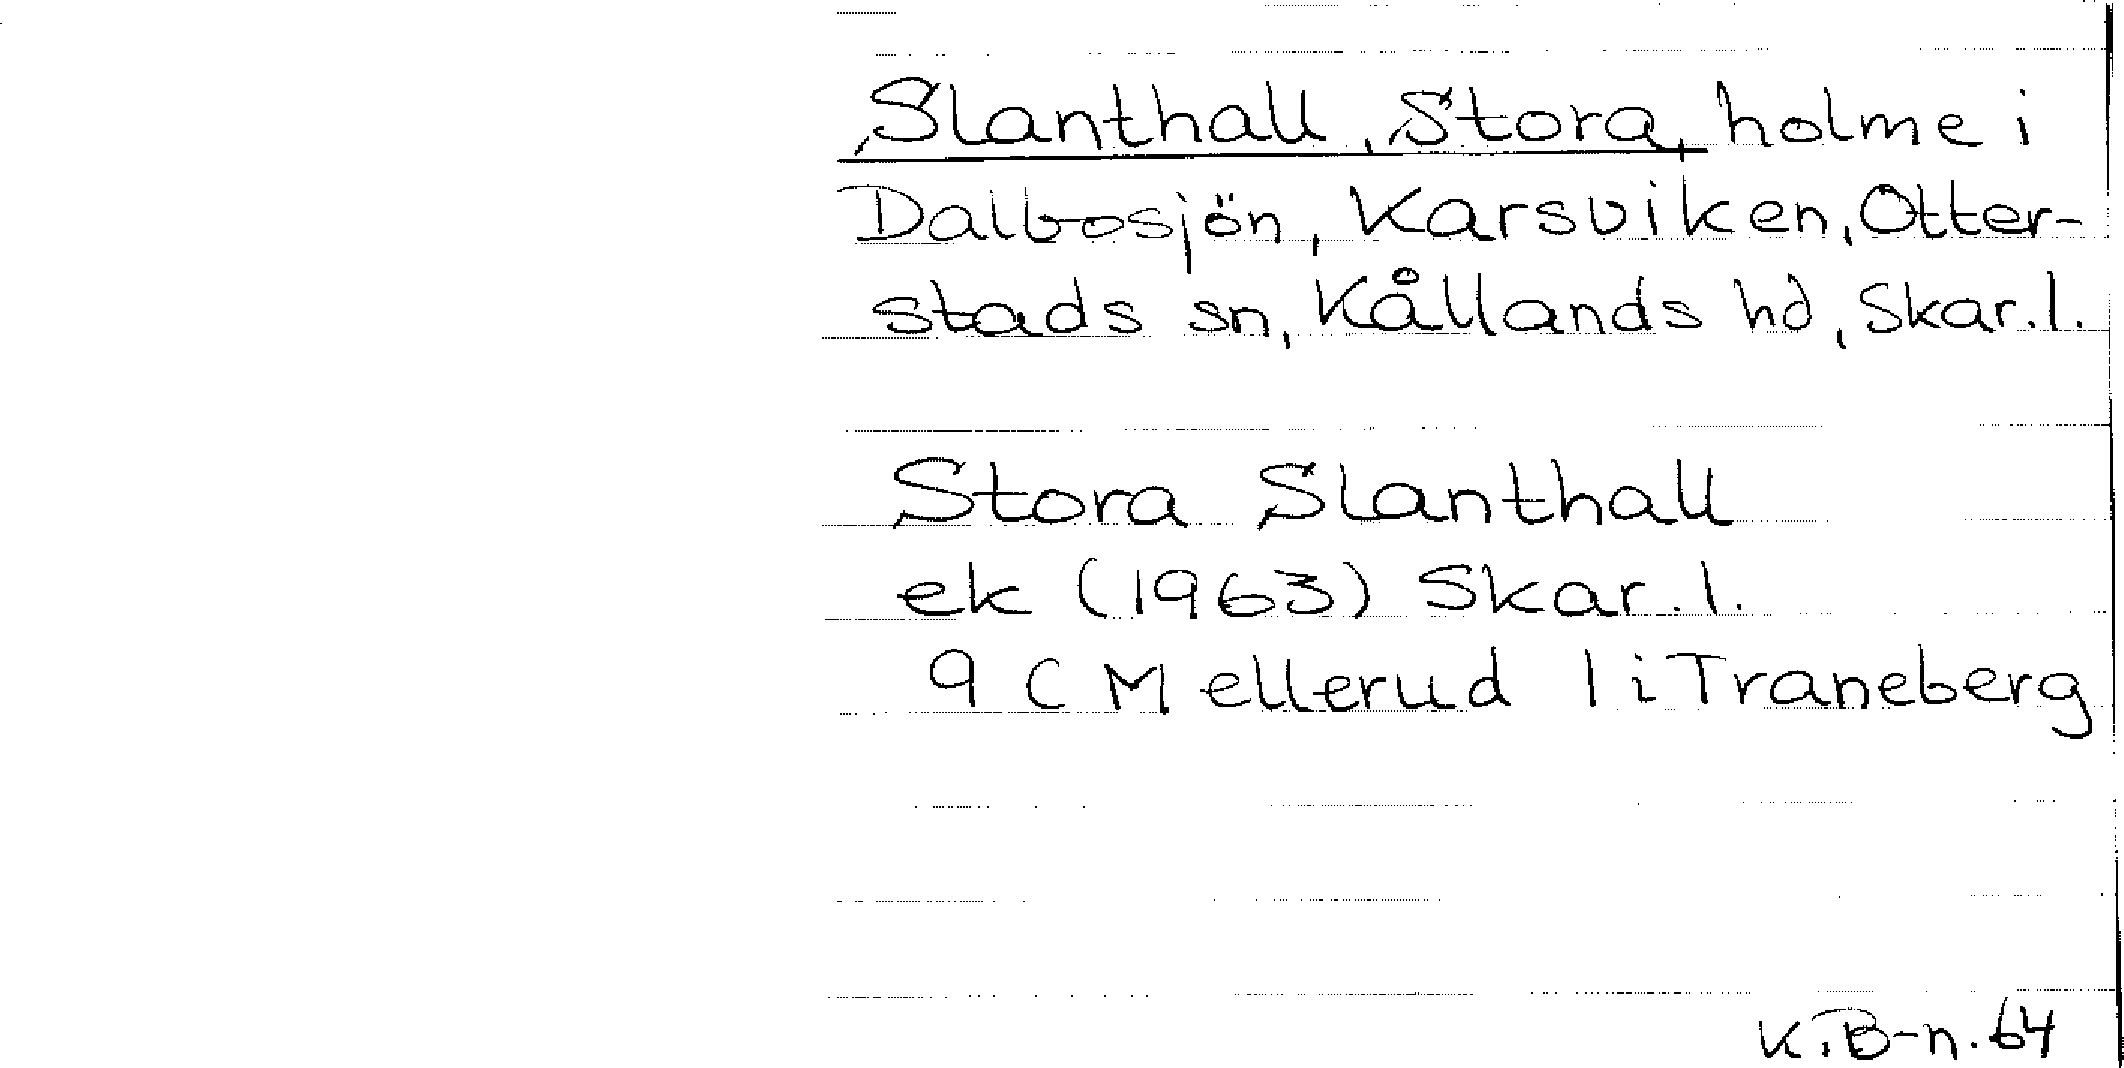 Slanthall, Stora, holme i
Dalbosjön, Karsviken, Otter-
stads sn, Kållands hd, Skar.l.
Stora Slanthall
ek (1963) Skar.l.
9 C Mellerud 1 i Traneberg
K.B-n. 64